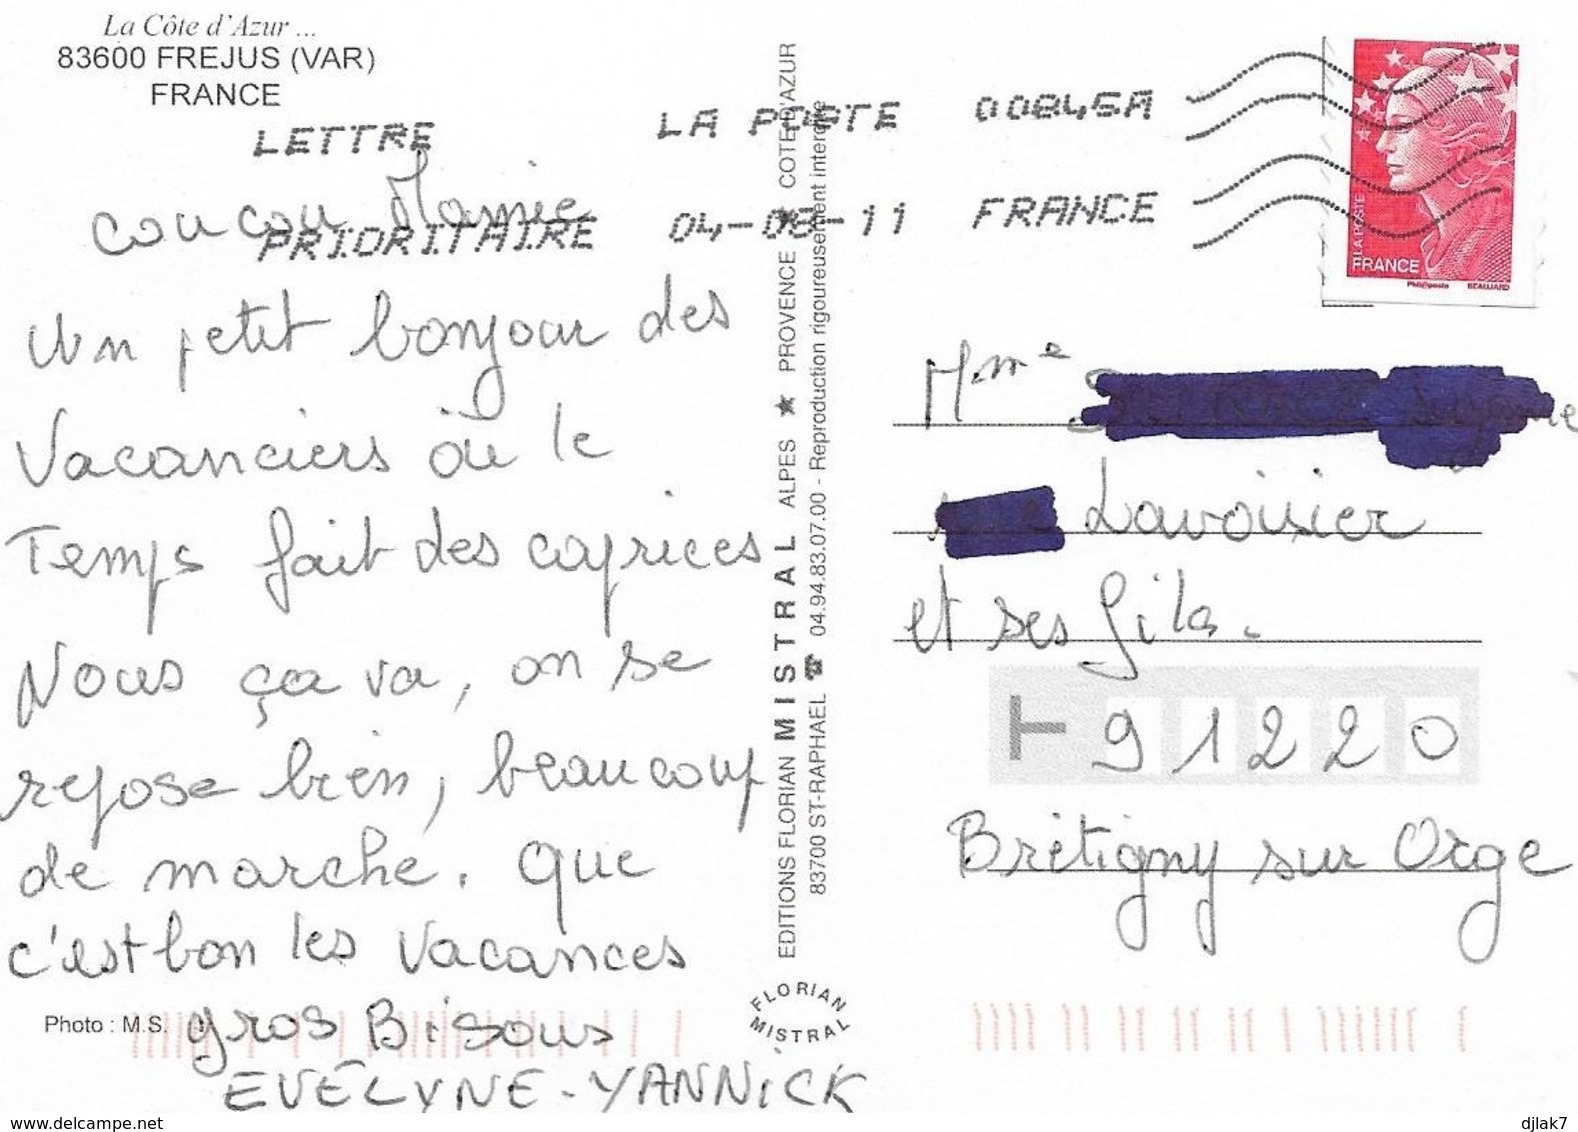 La Côte d'Azur ...
83600 FREJUS (VAR)
FRANCE
LETTRE
PRIORITAIRE
LA POSTE 00845A
04-08-11 FRANCE
LA POSTE
FRANCE
Phil@poste BEAUJARD
coucou Mamie
Un petit bonjour des
Vacanciers où le
Temps fait des caprices
Nous ça va, on se
repose bien, beaucoup
de marche. Que
c'est bon les vacances
gros Bisous
EVELYNE - YANNICK
Photo : M.S.
EDITIONS FLORIAN MISTRAL ALPES ★ PROVENCE ★ COTE D'AZUR
83700 ST-RAPHAEL ☎ 04.94.83.07.00 - Reproduction rigoureusement interdite
FLORIAN
MISTRAL
Mme
Lavoisier
et ses fils.
T 91220
Brétigny sur Orge
www.delcampe.net
djlak7